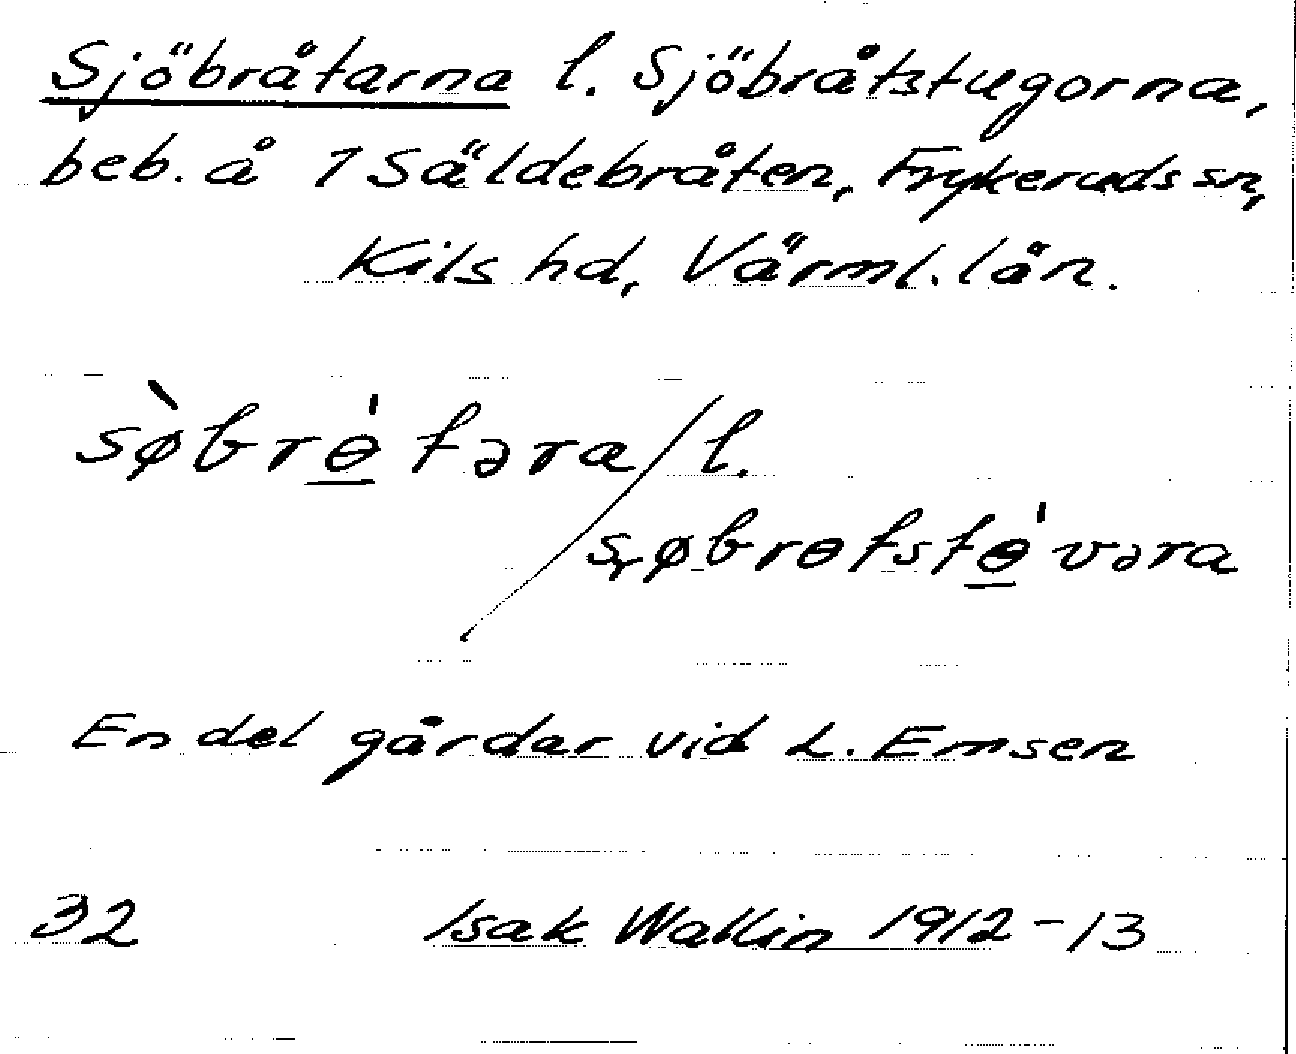 Sjöbråtarna l. Sjöbråtstugorna,
beb. å 1 Säldebråten, Frykeruds sn,
Kils hd, Värml. län.
sø̀brɵ̠́təra/l.
søbrɵtstɵ̠́vəra
En del gårdar vid L. Emsen
32 Isak Wallin 1912-13